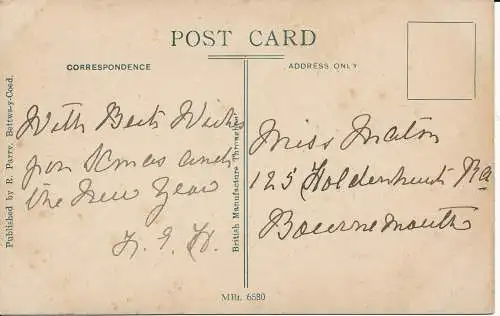 POST CARD
CORRESPONDENCE
ADDRESS ONLY
Published by R. Parry, Bettws-y-Coed.
With Best Wishes
for Xmas and
the New Year
British Manufacture Throughout
Miss Maton
125 Holdenhurst Rd
Bournemouth
MBt. 6580